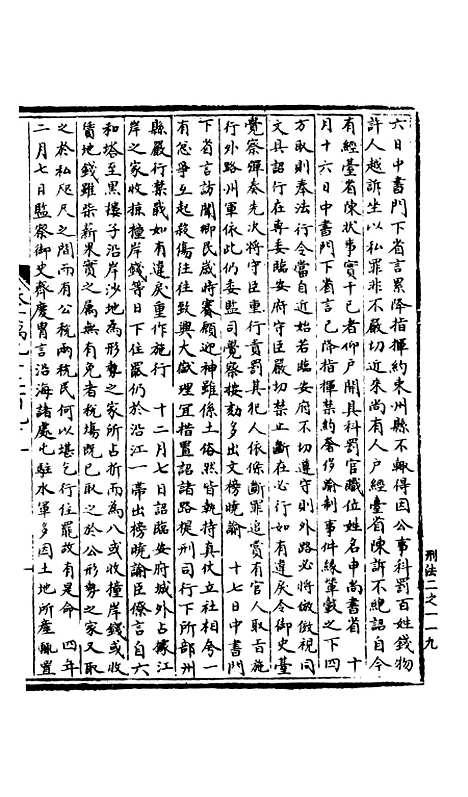 六日中書門下省言累降指揮約束州縣不輒得因公事科罰百姓錢物
許人越訴坐以私罪非不嚴切近來尚有人戶經臺省陳訴不絕詔自今
有經臺省陳狀事實干己者仰戶部開具科罰官職位姓名申尚書省　十
月十六日中書門下省言已降指揮禁約奢侈踰制事件緣輦轂之下四
方取則奉法行令當自近始若臨安府不切遵守則外路必將倣傚視同
文具詔行在專委臨安府守臣嚴切禁止斷在必行如有違戾令御史臺
覺察彈奏先次將守臣重行責罰其犯人依條斷罪追賞有官人取旨施
行外路州軍依此仍委監司覺察按劾多出文榜曉諭　十七日中書門
下省言訪聞鄉民歲時賽願迎神雖係土俗然皆執持真仗立社相誇一
有忿爭互起殺傷往往致興大獄理宜措置詔諸路提刑司行下所部州
縣嚴行禁戢如有違戾重作施行　十二月七日詔臨安府城外占據江
岸之家收掠撞岸錢等日下住罷仍於沿江一帶出榜曉諭臣僚言自六
和塔至黑樓子沿岸沙地為形勢之家所占折而為八或收撞岸錢或收
賃地錢雖柴薪果實之屬無有免者稅場既已取之於公形勢之家又取
之於私咫尺之間而有公稅兩稅民何以堪乞行住罷故有是命　四年
二月七日監察御史齊慶冑言沿海諸處屯駐水軍多因土地所產輒置
刑法二之一一九